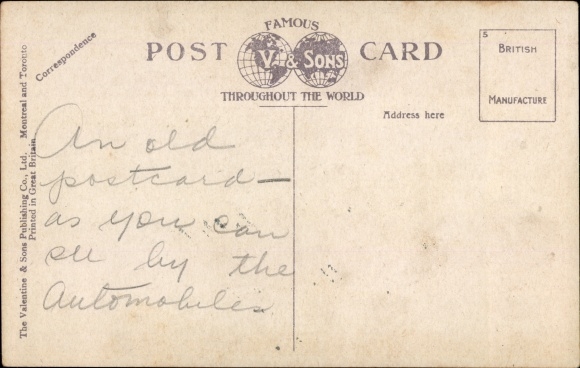 Correspondence
FAMOUS
POST CARD
V. & SONS
THROUGHOUT THE WORLD
5
BRITISH
MANUFACTURE
Address here
The Valentine & Sons Publishing Co., Ltd. Montreal and Toronto
Printed in Great Britain.
An old
postcard —
as you can
see by the
Automobiles